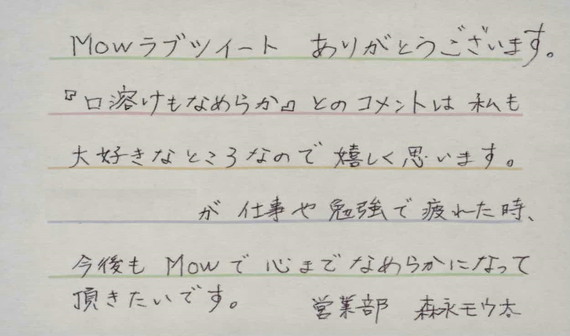 Mowラブツイート ありがとうございます。
『口溶けもなめらか』とのコメントは 私も
大好きなところなので 嬉しく思います。
が 仕事や 勉強で 疲れた時、
今後も Mowで 心まで なめらかになって
頂きたいです。 営業部 森永モウ太